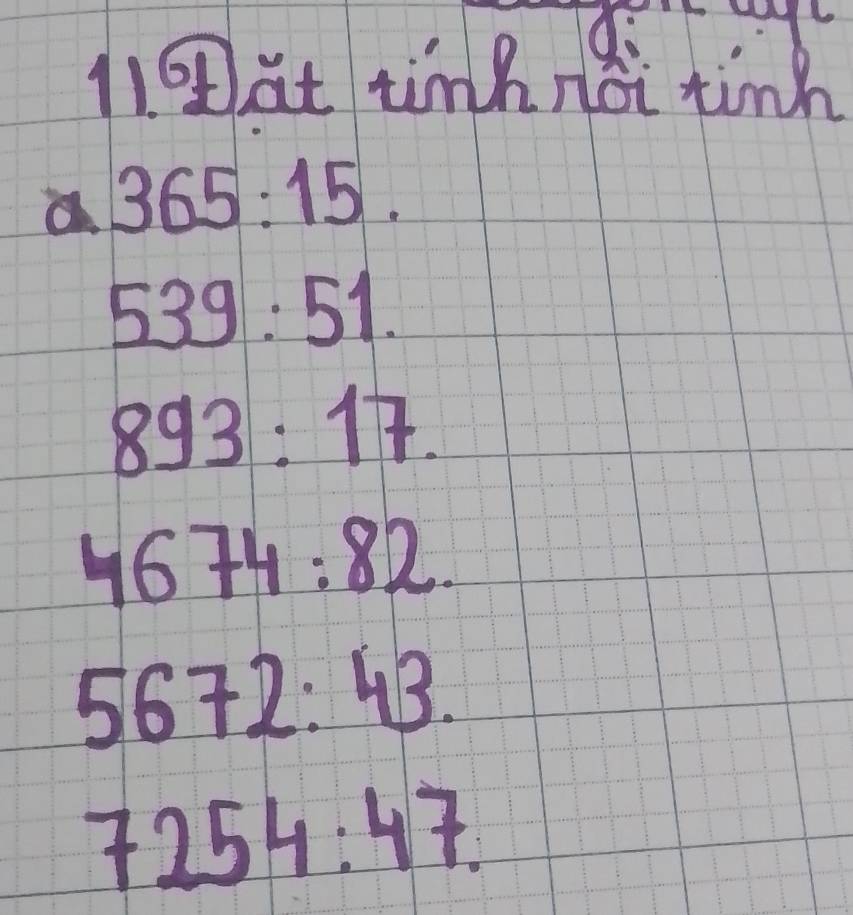 11. Đặt tính rồi tính
a 365 : 15.
539 : 51.
893 : 17.
4674 : 82.
5672 : 43.
7254 : 47.